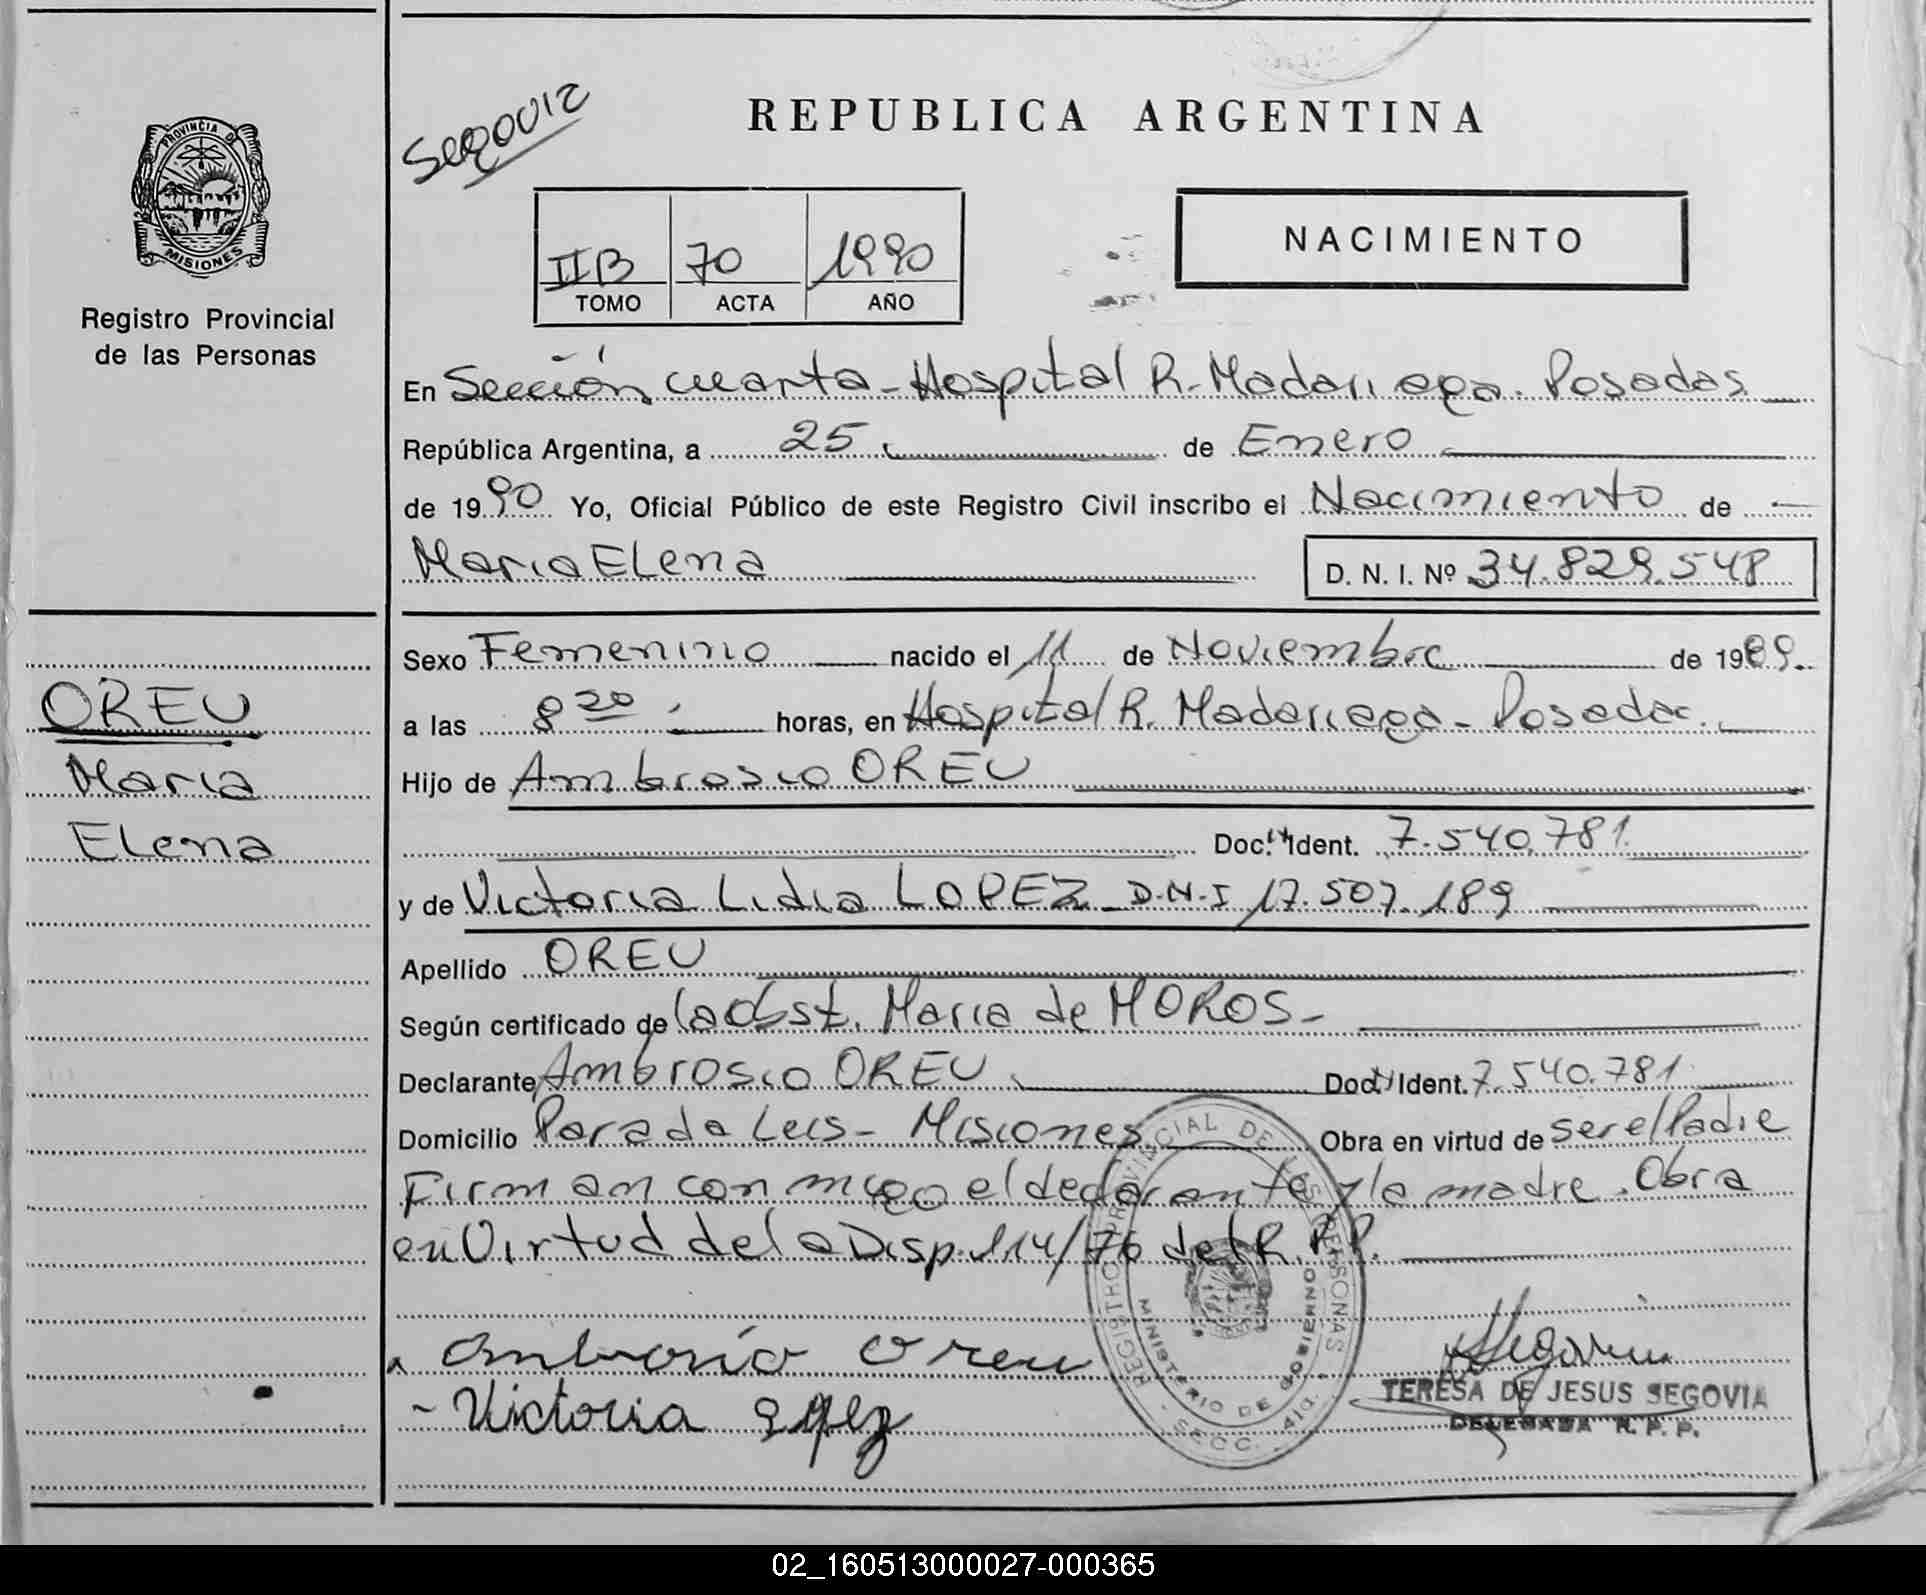 PROVINCIA DE
MISIONES
Registro Provincial
de las Personas
OREU
Maria
Elena
Segovia
REPUBLICA ARGENTINA
IIB 70 1990
TOMO ACTA AÑO
NACIMIENTO
En Sección cuarta - Hospital R. Madariaga. Posadas
República Argentina, a 25 de Enero
de 1990 Yo, Oficial Público de este Registro Civil inscribo el Nacimiento de
Maria Elena D. N. I. Nº 34.829.548
Sexo Femenino nacido el 11 de Noviembre de 1989.
a las 8 20 horas, en Hospital R. Madariaga - Posadas.
Hijo de Ambrosio OREU
Doc. Ident. 7.540.781.
y de Victoria Lidia LOPEZ - D.N.I 17.507.189
Apellido OREU
Según certificado de la obst. Maria de MOROS -
Declarante Ambrosio OREU Doc. Ident. 7.540.781
Domicilio Parada Leis - Misiones Obra en virtud de ser el Padre
Firman conmigo el declarante y la madre. Obra
en Virtud de la Disp. 114/76 del R.P.P.
Ambrosio Oreu
- Victoria Lopez
REGISTRO PROVINCIAL DE LAS PERSONAS
MINISTERIO DE GOBIERNO
- SECC. 4ta. -
TERESA DE JESUS SEGOVIA
DELEGADA R. P. P.
02_160513000027-000365